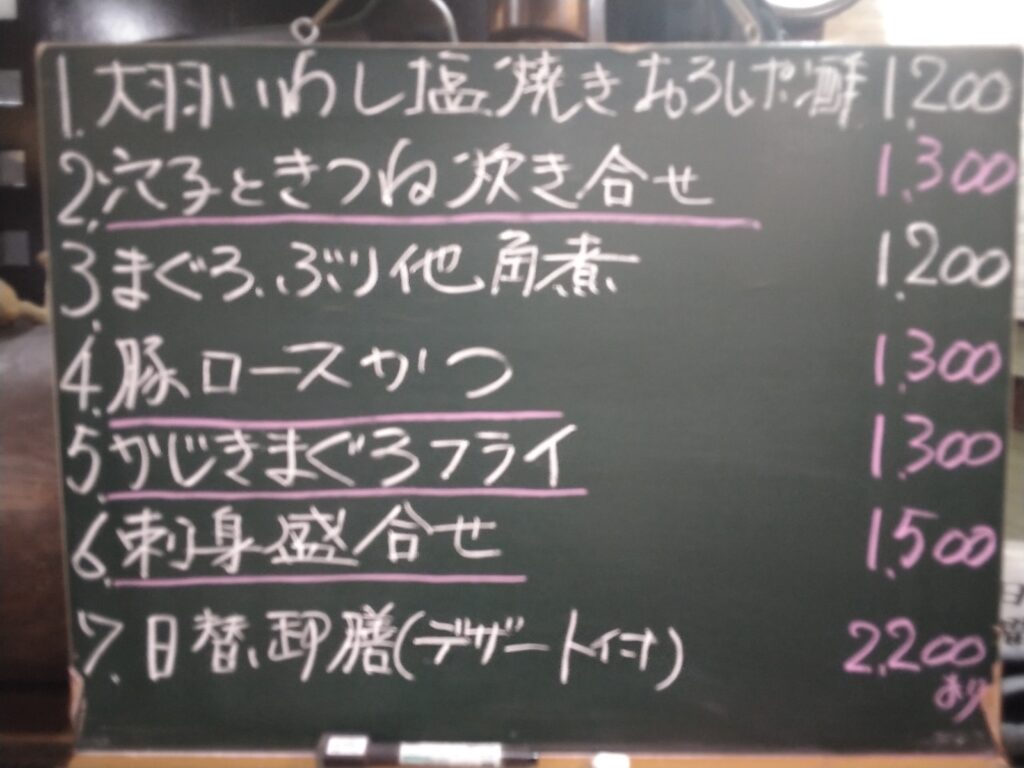 1.大羽いわし塩焼きおろしポン酢 1,200
2.穴子ときつね炊き合せ 1,300
3.まぐろ、ぶり他角煮 1,200
4.豚ロースかつ 1,300
5.かじきまぐろフライ 1,300
6.刺身盛合せ 1,500
7.日替御膳(デザート付) 2,200
あり